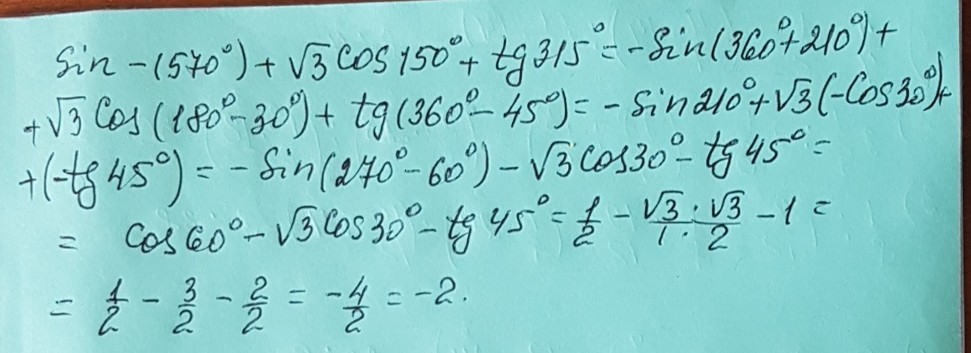 Sin -(570°) + √3 Cos 150° + tg 315° = -Sin(360°+210°) +
+√3 Cos (180°-30°) + tg (360°-45°) = - Sin 210° + √3 (-Cos 30°) +
+(-tg 45°) = - Sin (270°-60°) - √3 Cos 30° - tg 45° =
= Cos 60° - √3 Cos 30° - tg 45° = 1/2 - √3/1 · √3/2 - 1 =
= 1/2 - 3/2 - 2/2 = -4/2 = -2.